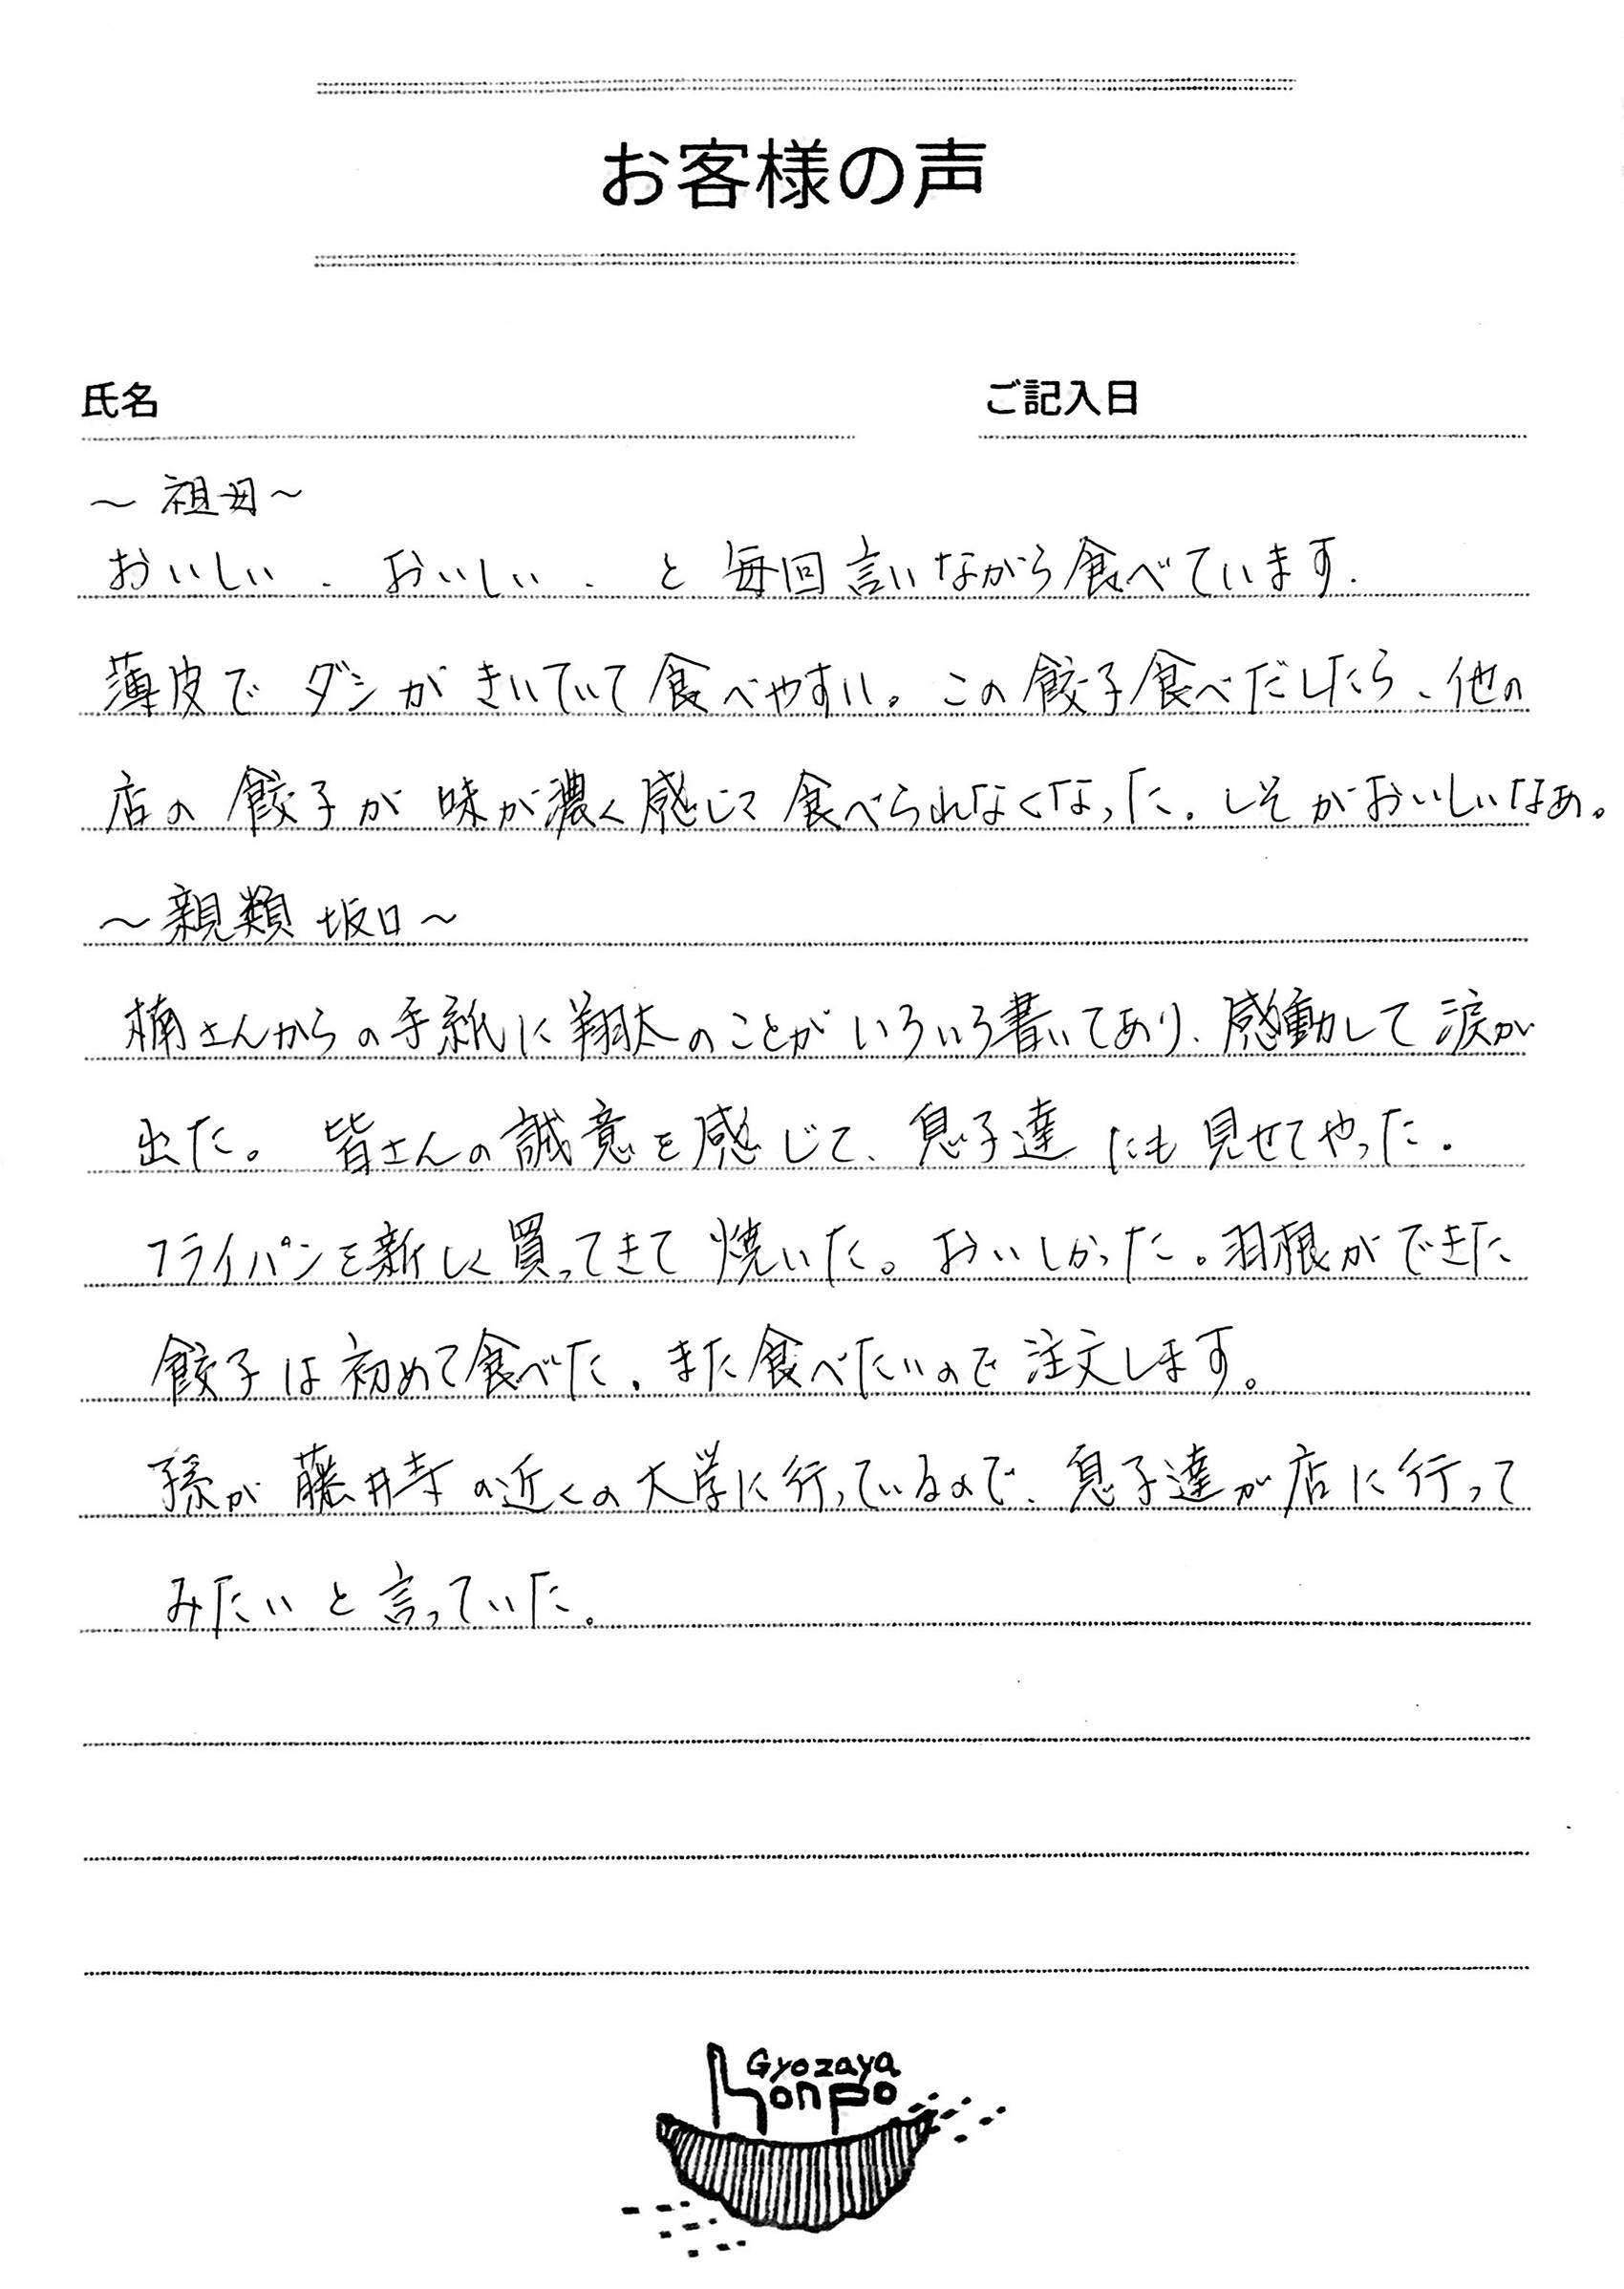 お客様の声
氏名
ご記入日
～祖母～
おいしい、おいしい、と毎回言いながら食べています.
薄皮でダシがきいていて食べやすい。この餃子食べだしたら、他の
店の餃子が味が濃く感じて食べられなくなった. しそがおいしいなあ。
～親類 坂口～
楠さんからの手紙に翔太のことがいろいろ書いてあり、感動して涙が
出た。皆さんの誠意を感じて、息子達にも見せてやった.
フライパンを新しく買ってきて焼いた。おいしかった。羽根ができた
餃子は初めて食べた. また食べたいので注文します。
孫が藤井寺の近くの大学に行っているので、息子達が店に行って
みたいと言っていた。
Gyozaya
honpo